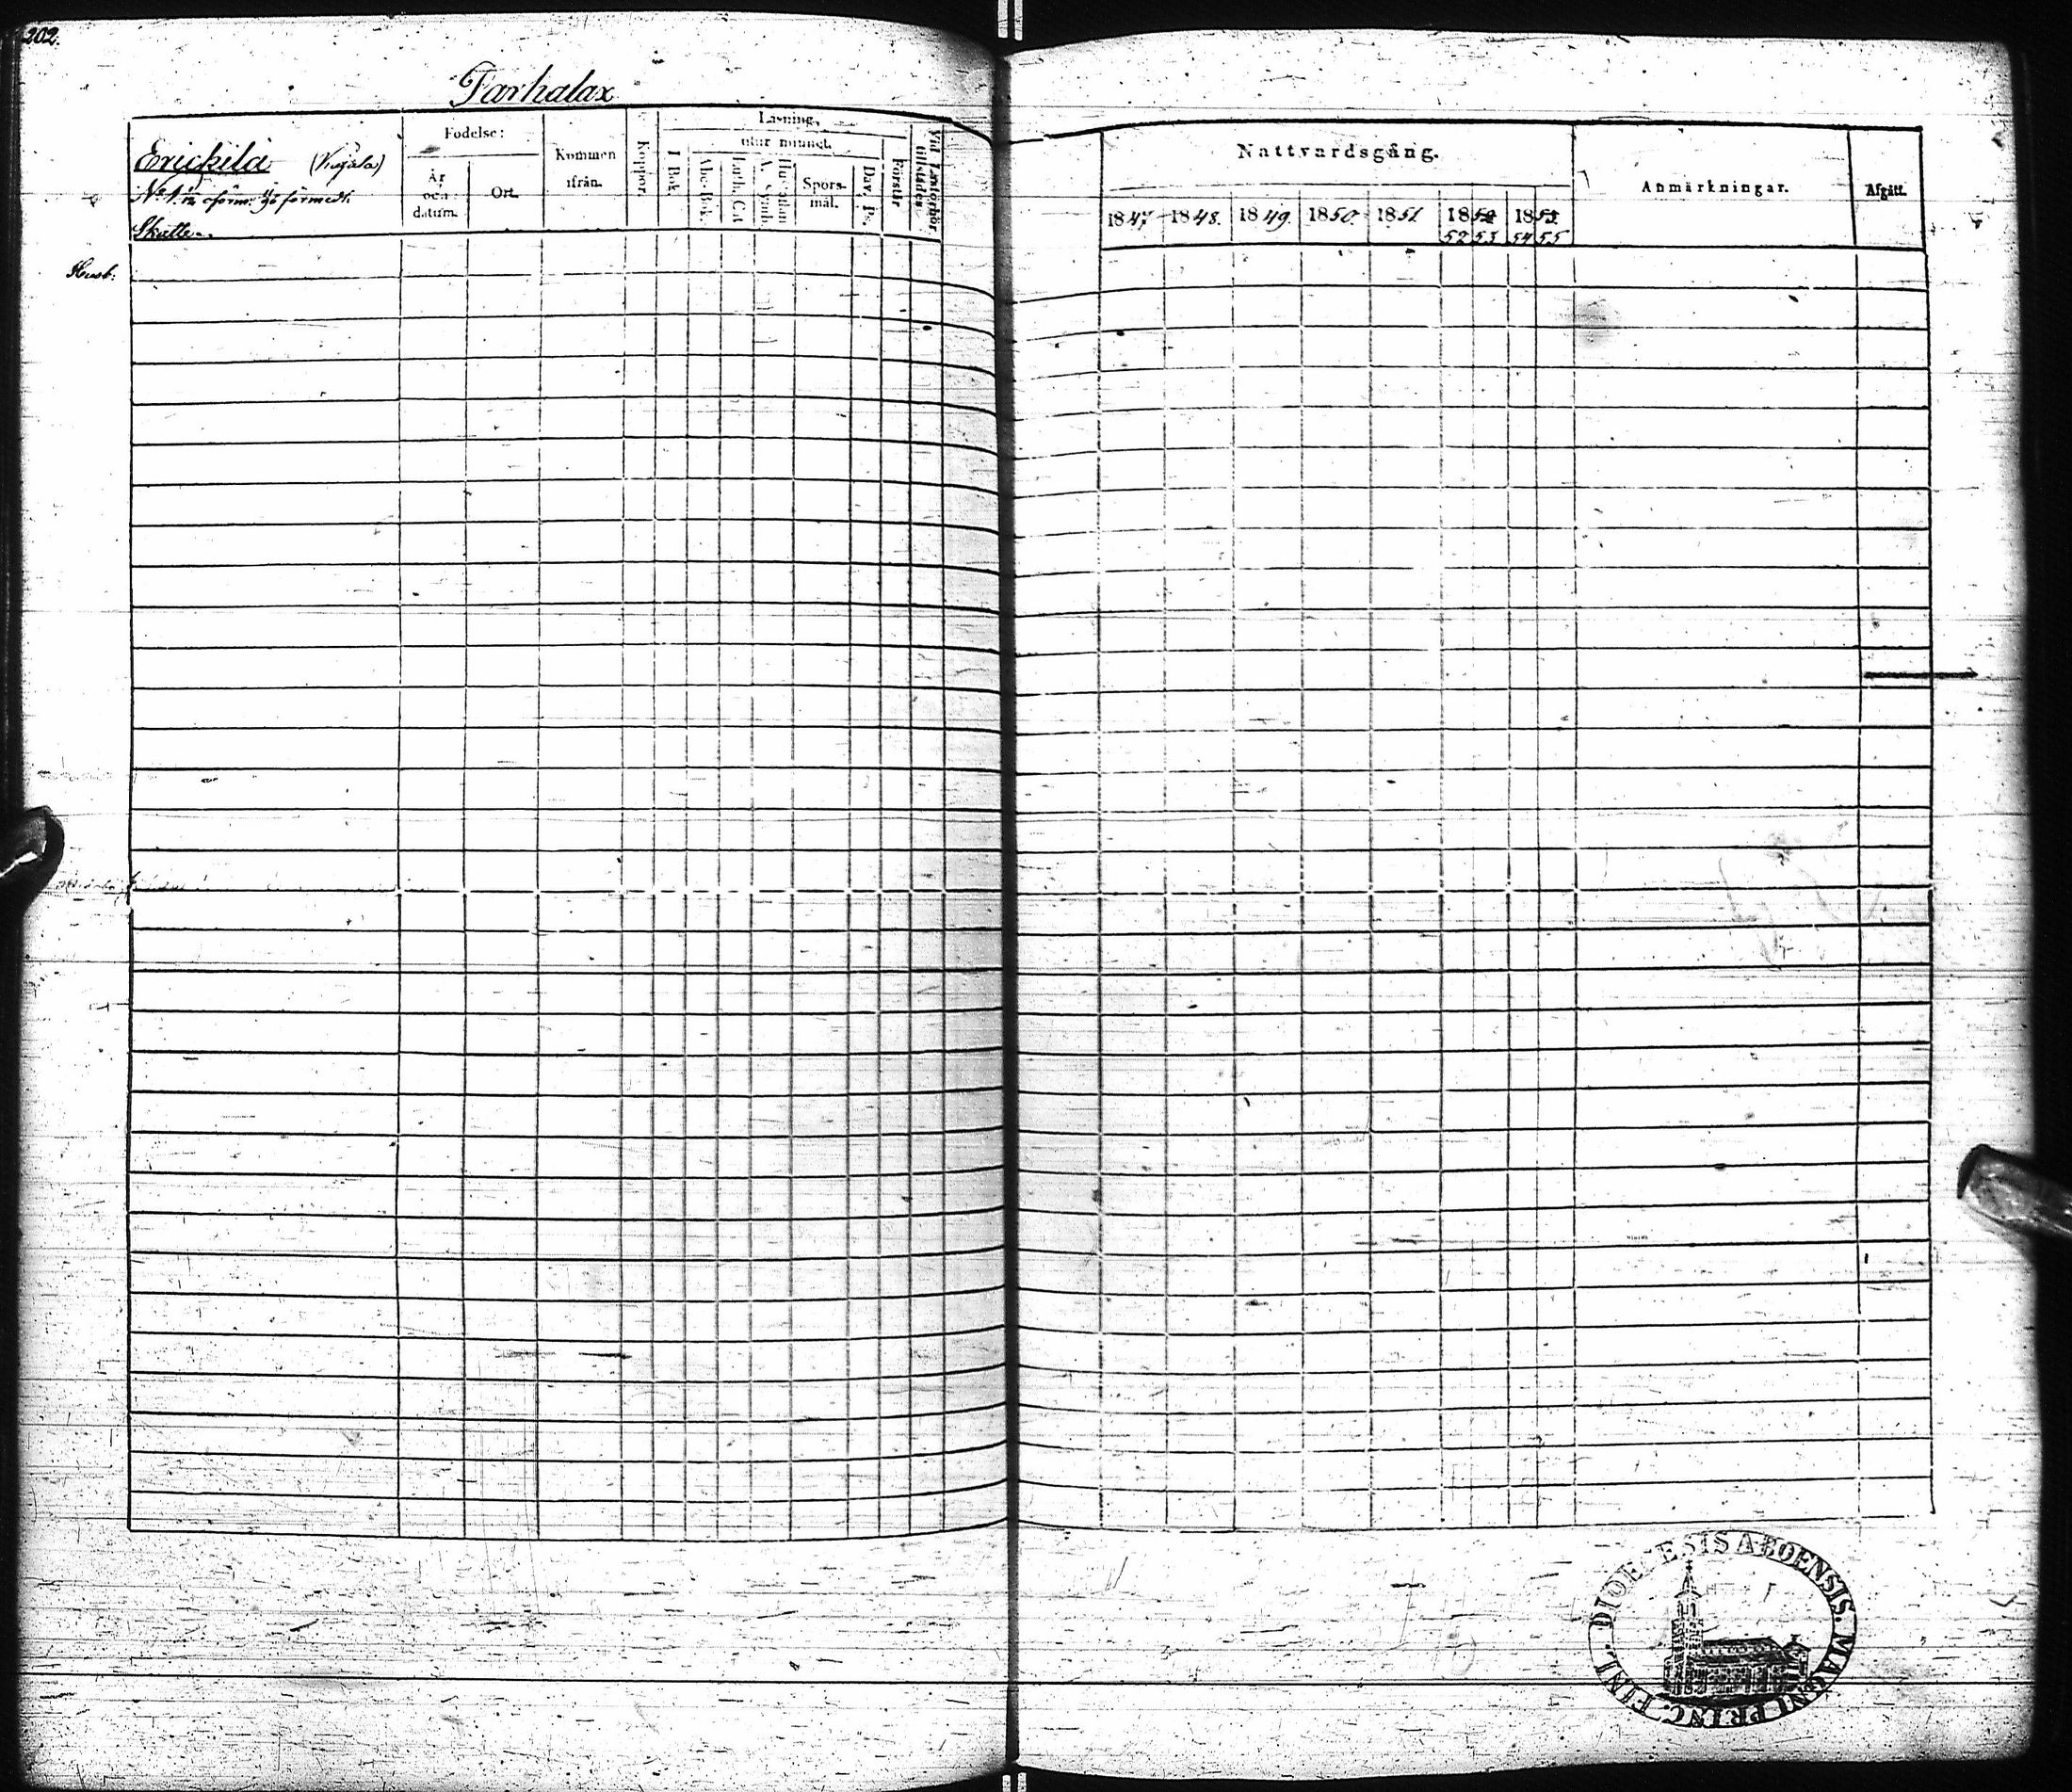 202.
Tarhalax
Erickilä (Kujala)
No 1
Skatte.
Husb:
Födelse:
År och datum.
Ort.
Kommen ifrån.
Koppor.
Läsning,
utur minnet.
I Bok.
Abc-Bok.
Luth. Cat
A. Symb.
Hustaflan
Spörsmål.
Dav. Ps.
Förstår
Vid Läsförhör tillstädes
Nattvardsgång.
1847.
1848.
1849.
1850.
1851
1852
52 53
1853
54 55
Anmärkningar.
Afgått.
DIOECESIS ABOENSIS. MAGNI PRINC. FINL.